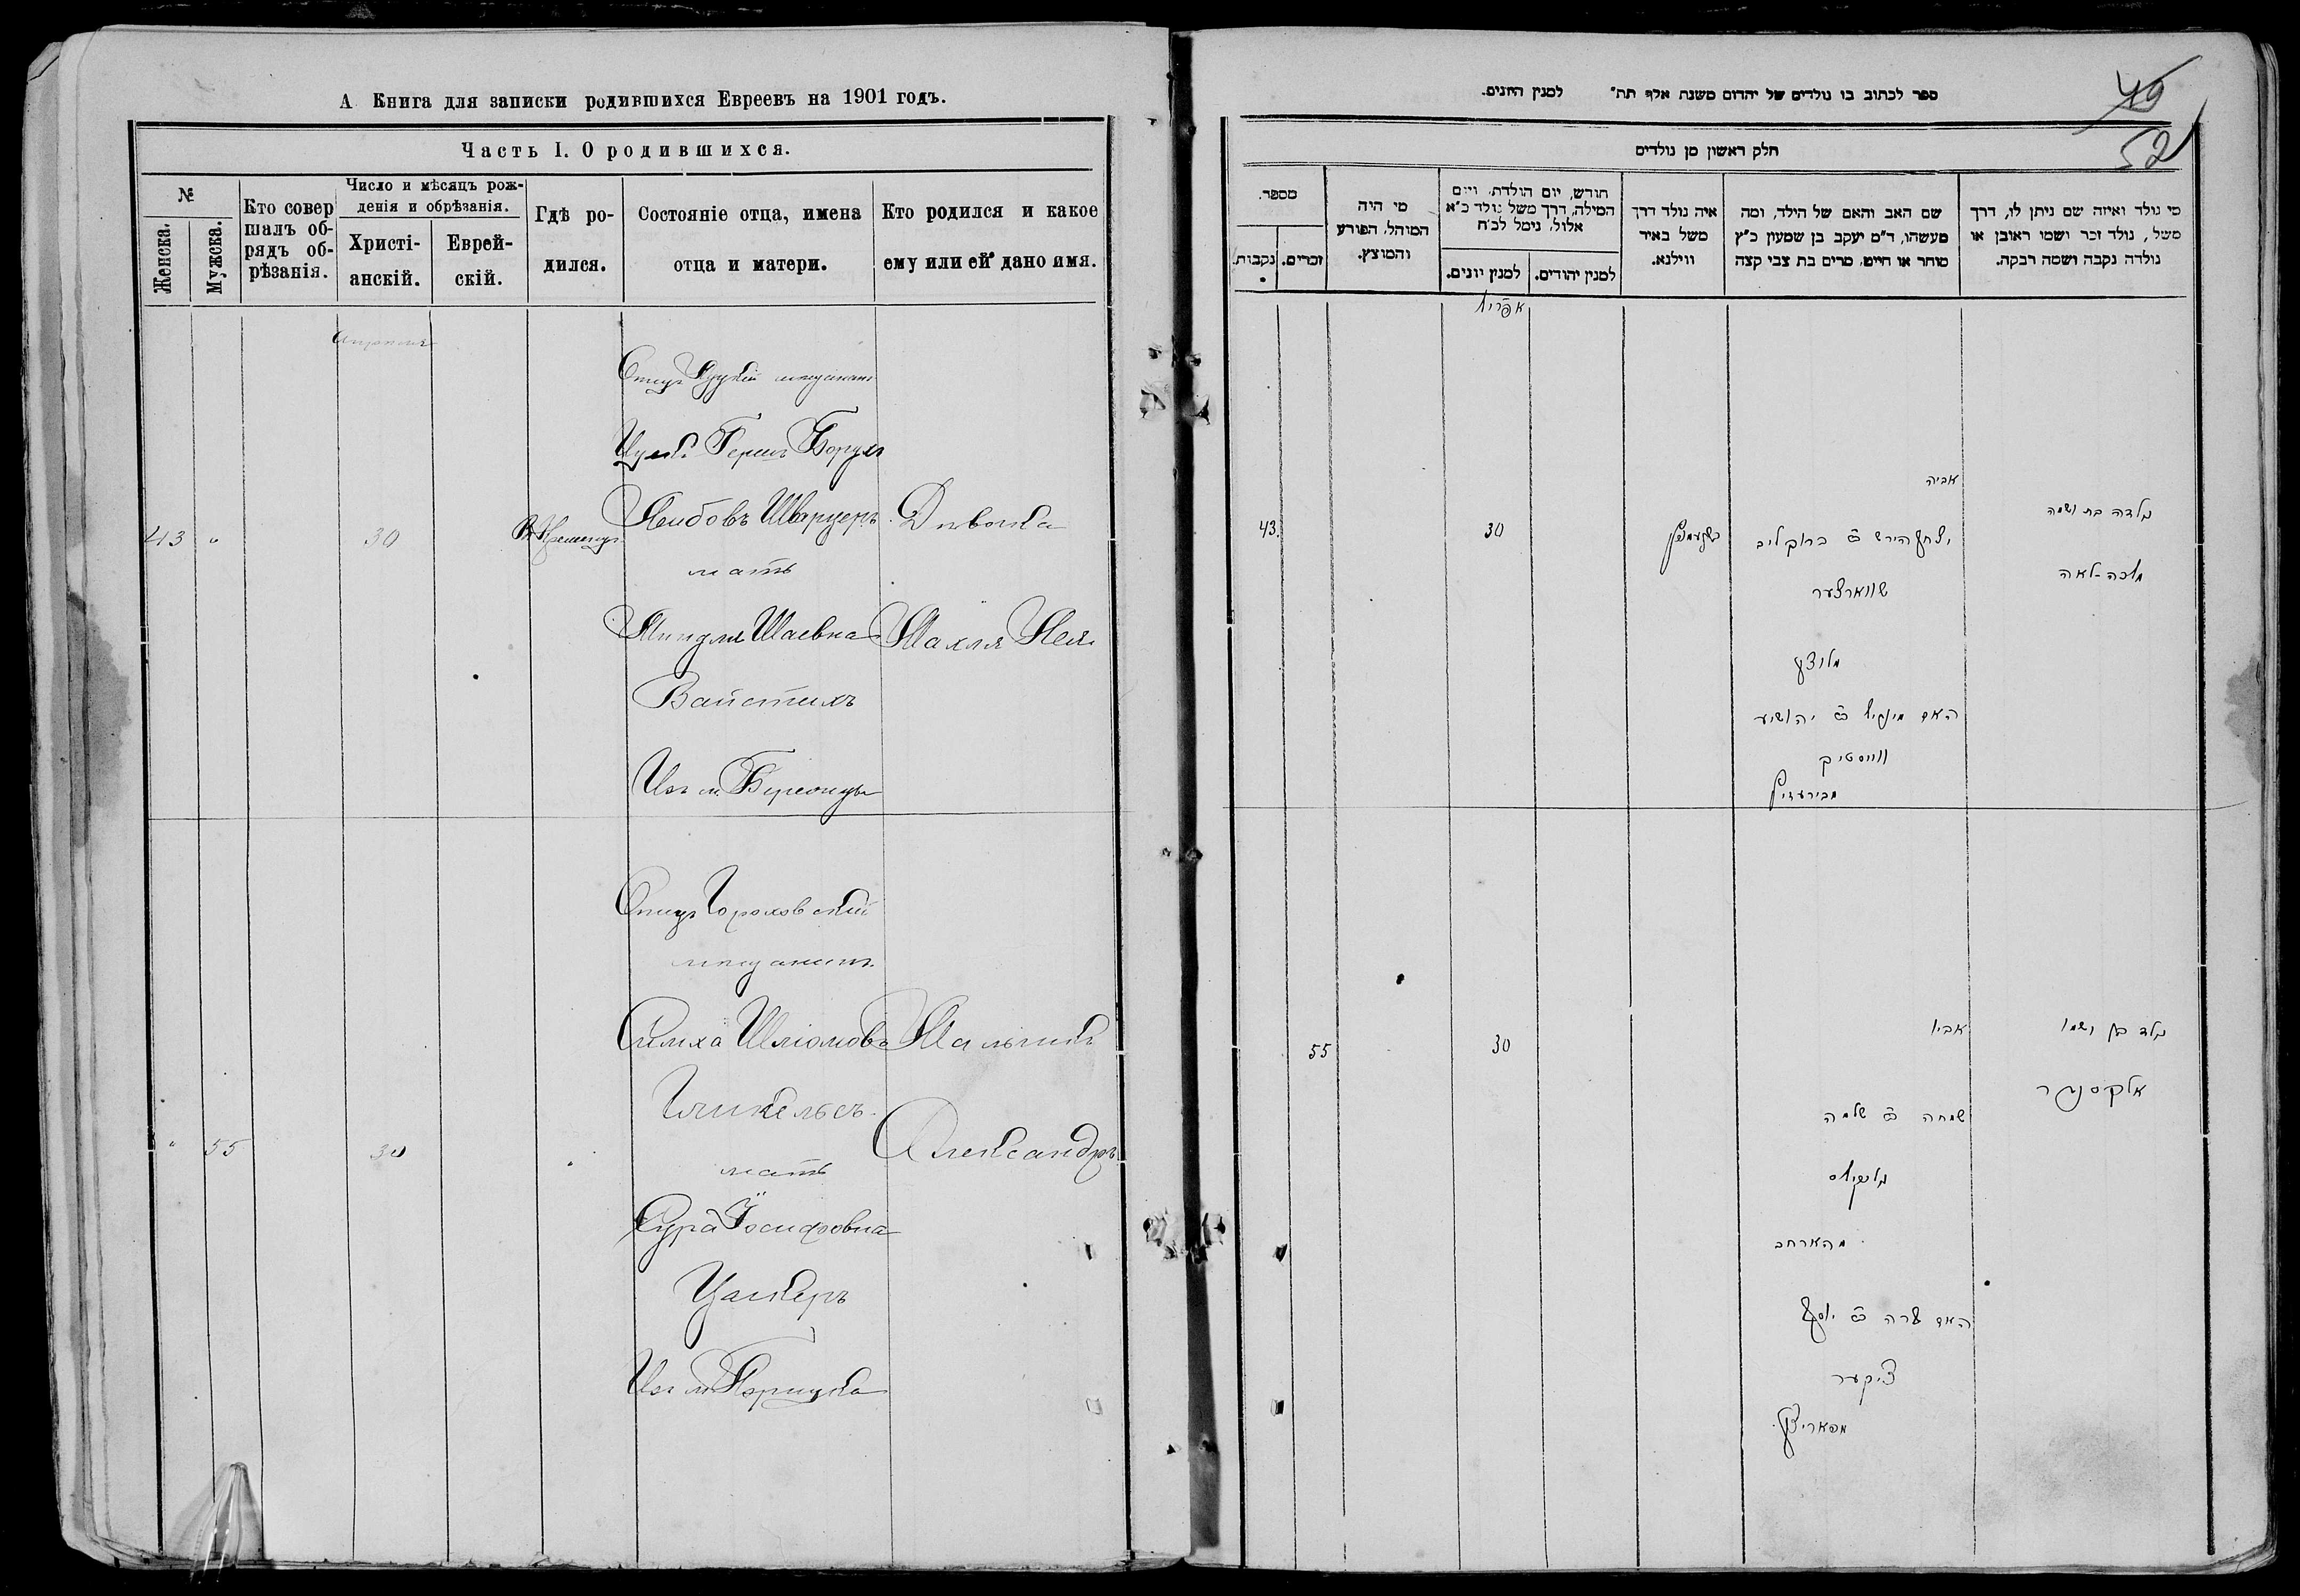 А Книга для записки родившихся Евреевъ на 1901 годъ.
Часть I. О родившихся.
№
Женска.
Мужска.
Кто совер
шалъ об-
рядъ об-
рѣзанія.
Число и мѣсяцъ рож-
денія и обрѣзанія.
Христі-
анскій.
Еврей-
скій.
Гдѣ ро-
дился.
Состояніе отца, имена
отца и матери.
Кто родился и какое
ему или ей дано имя.
43
30
Отецъ Луцкій мѣщанинъ
Ицекъ Гершъ Борухъ
Лейбовъ Шварцеръ
мать
Миндля Шаевна
Вайстихъ
Изъ м.
Дѣвочка
Махля Лея
55
30
Отецъ Гороховскій
мѣщанинъ
Симха Шліомовъ
мать
Сура Іосифовна
Цамкеръ
Изъ м. Порицка
Мальчикъ
Александръ
ספר לכתוב בו נולדים של יהדום משנת אלף תת״ למנין היונים.
49
52
חלק ראשון מן נולדים
מספר.
נקבות.
זכרים.
מי היה
המוהל, הפורע
והמוצץ.
חודש, יום הולדת, ויום
המילה, דרך משל נולד כ״א
אלול, נימל לכ״ח
למנין יונים.
למנין יהודים.
איה נולד דרך
משל באיר
ווילנא.
שם האב והאם של הילד, ומה
מעשהו, ד״מ יעקב בן שמעון כ״ץ
סוחר או חייט, מרים בת צבי קצה
מי נולד ואיזה שם ניתן לו, דרך
משל, נולד זכר ושמו ראובן או
נולדה נקבה ושמה רבקה.
אפריל
43.
30
אביה
שווארצער
מלוצק
האם מינדיל בת יהושיע
ווייסטיך
נולדה בת ושמה
מלכה-לאה
55
30
אביו
שמחה בן שלמה
האם שרה בת יוסף
צוקער
מפאריצק
נולד בן ושמו
אלקסנדר